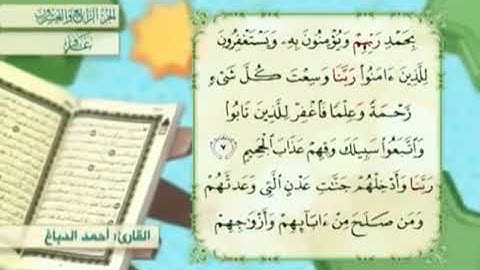 الجزء الرابع والعشرون
غافر
بِحَمْدِ رَبِّهِمْ وَيُؤْمِنُونَ بِهِۦ وَيَسْتَغْفِرُونَ
لِلَّذِينَ ءَامَنُوا۟ رَبَّنَا وَسِعْتَ كُلَّ شَىْءٍ
رَّحْمَةً وَعِلْمًا فَٱغْفِرْ لِلَّذِينَ تَابُوا۟
وَٱتَّبَعُوا۟ سَبِيلَكَ وَقِهِمْ عَذَابَ ٱلْجَحِيمِ ٧
رَبَّنَا وَأَدْخِلْهُمْ جَنَّـٰتِ عَدْنٍ ٱلَّتِى وَعَدتَّهُمْ
وَمَن صَلَحَ مِنْ ءَابَآئِهِمْ وَأَزْوَٰجِهِمْ
القارئ: أحمد الدباغ